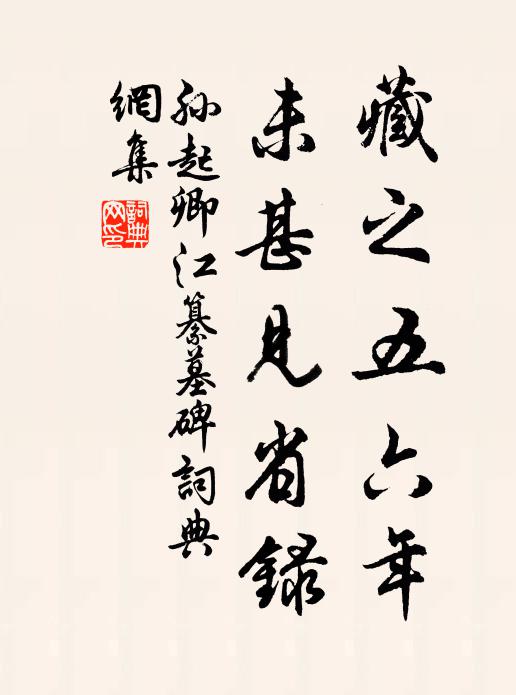 藏之五六年
未甚見省錄
孫起卿江纂墓碑詞典
網集
詞典
网印